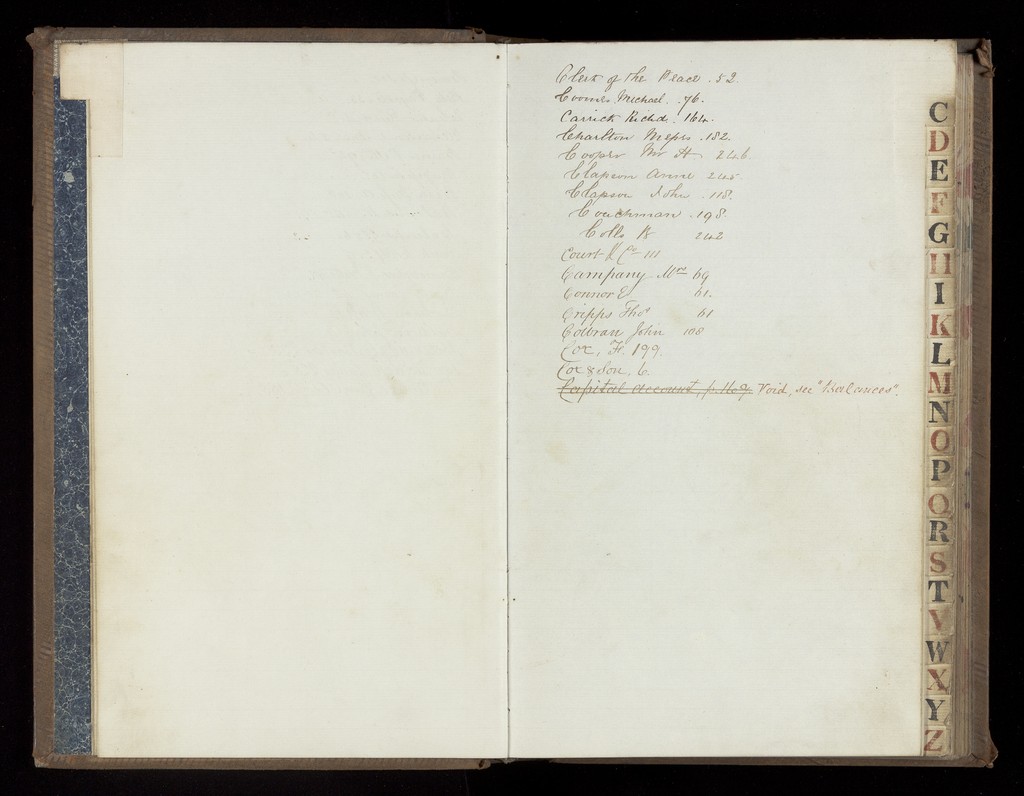 Clerk of the Peace . 52
Coomes Michael . 76.
Carrick Richd . 164.
Charlton Messrs . 182.
Cooper Mr H 246.
Clapson Anne 245
Clapson John . 118.
Couchman . 198.
Colls R 242
Court & Co 111
Campany Mrs 69
Connor E 61.
Cripps Thos 61
Coltran John 108
Cox, F. 199.
Cox & Son, 6.
Capital Account, p. 169. Void, see "Balances".
C
D
E
F
G
H
I
K
L
M
N
O
P
Q
R
S
T
V
W
X
Y
Z